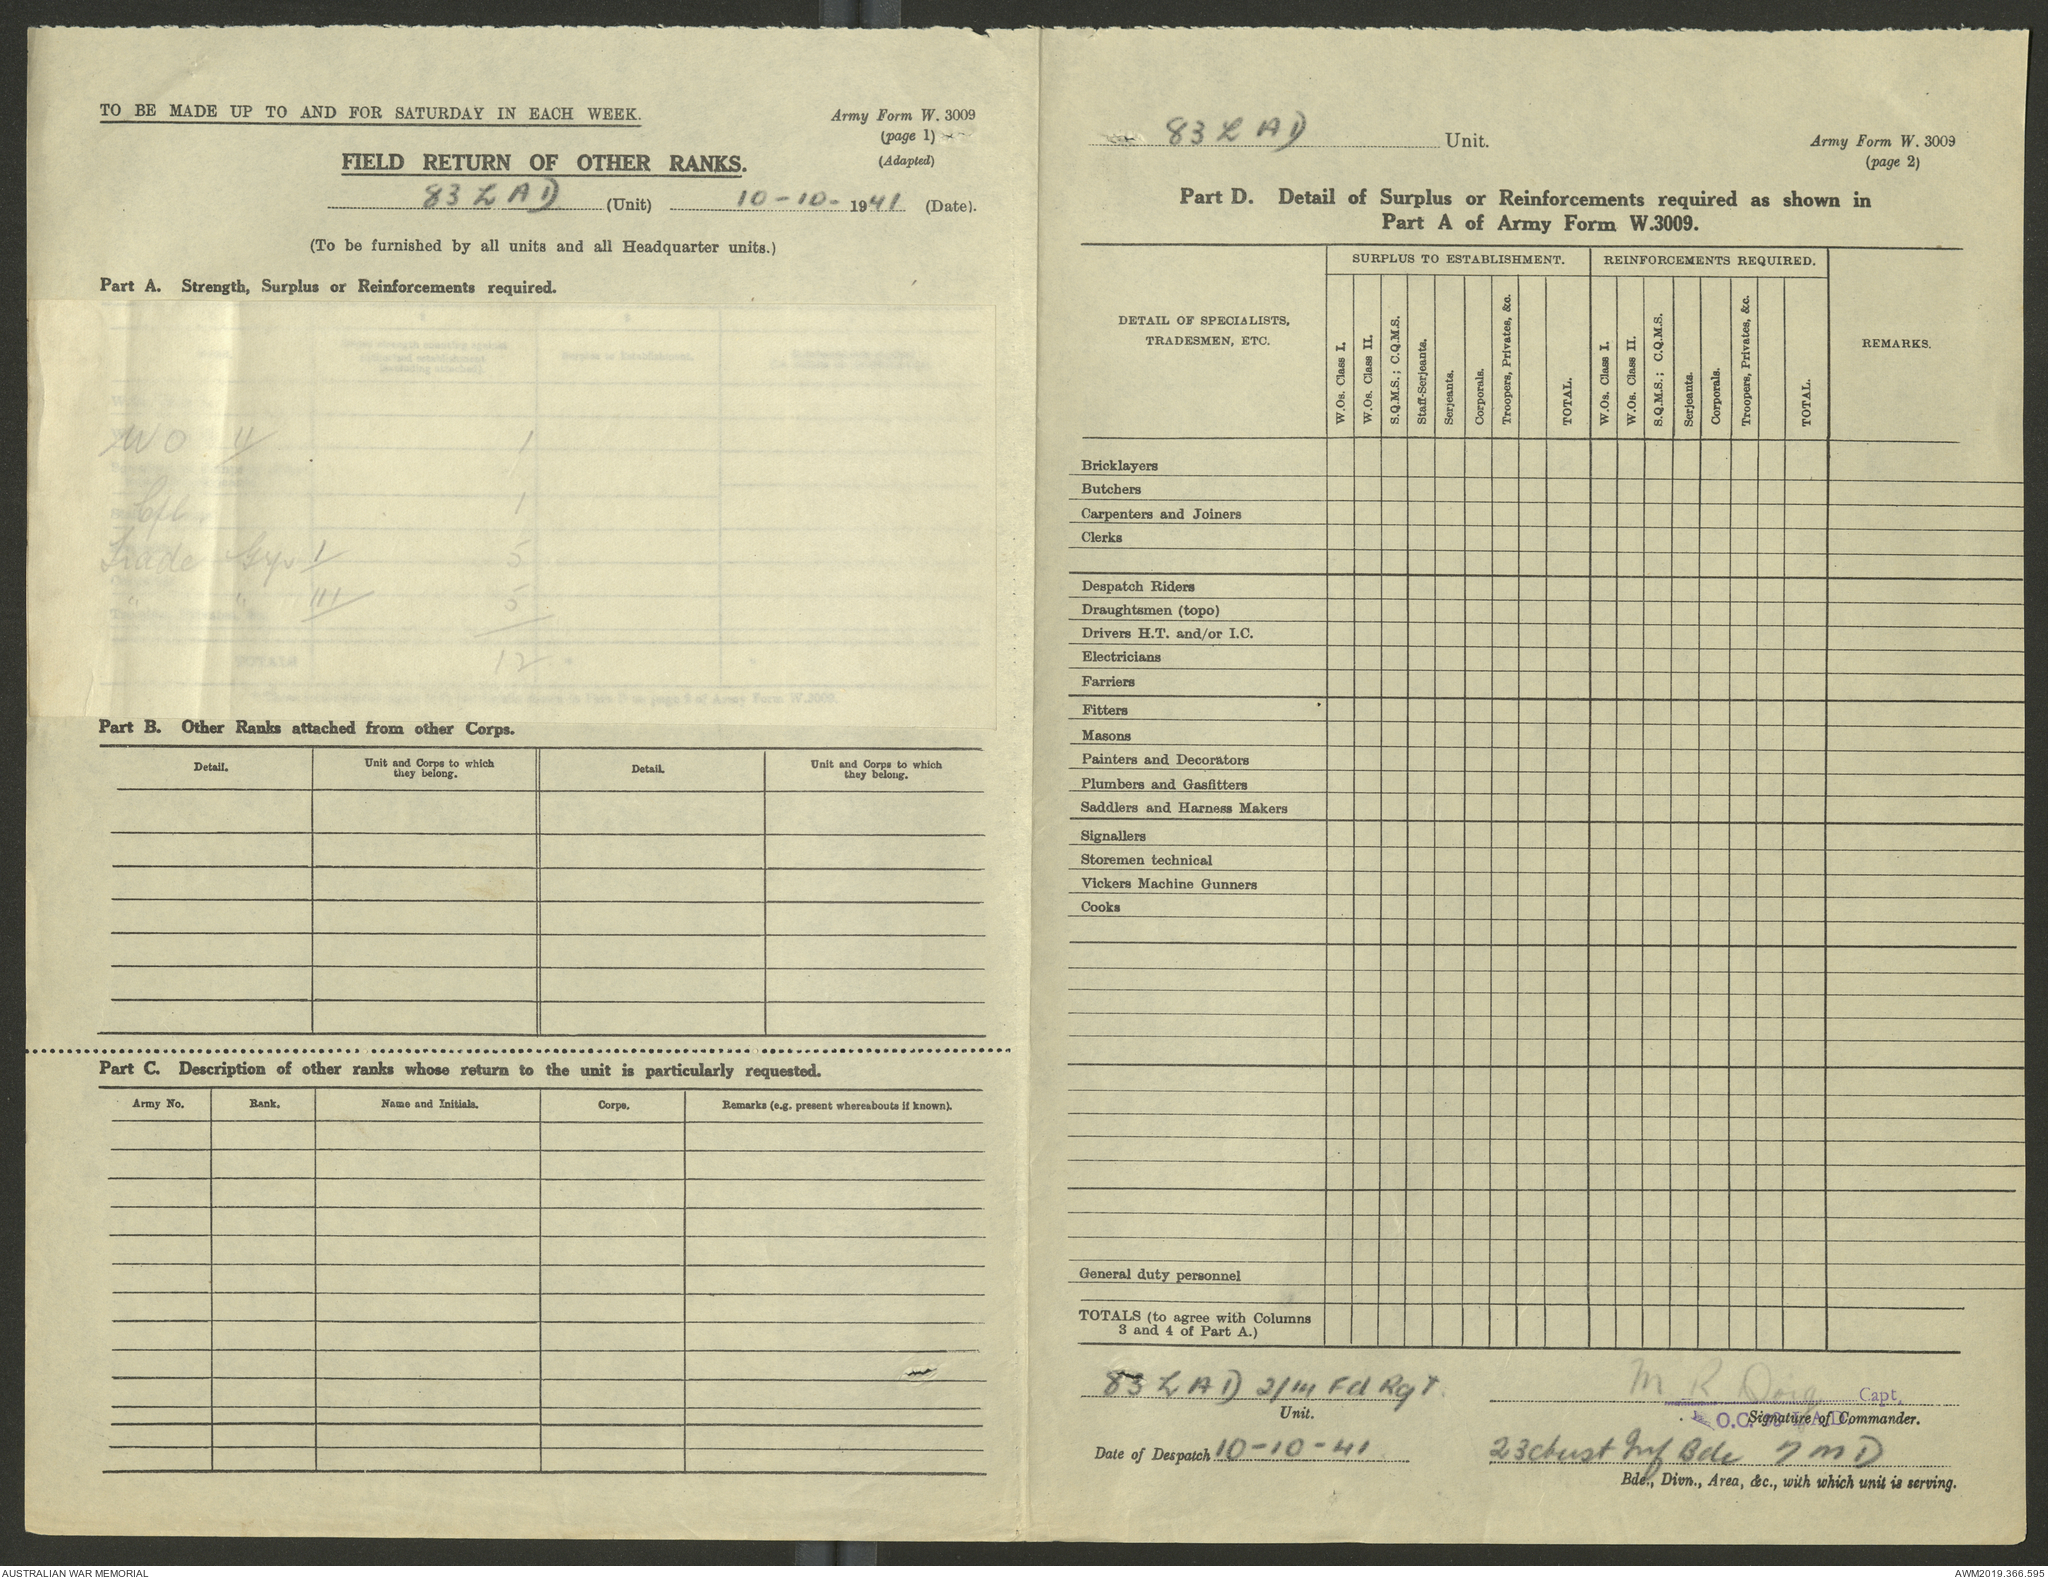 TO BE MADE UP TO AND FOR SATURDAY IN EACH WEEK.
Army Form W. 3009
(page 1)
(Adapted)
FIELD RETURN OF OTHER RANKS.
83 L A D (Unit) 10-10-1941 (Date).
(To be furnished by all units and all Headquarter units.)
Part A. Strength, Surplus or Reinforcements required.
WO II 1
Cfl 1
Trade Grp I 5
" " III 5
12
Part B. Other Ranks attached from other Corps.
Detail. Unit and Corps to which they belong. Detail. Unit and Corps to which they belong.
Part C. Description of other ranks whose return to the unit is particularly requested.
Army No. Rank. Name and Initials. Corps. Remarks (e.g. present whereabouts if known).
83 L A D Unit.
Army Form W. 3009
(page 2)
Part D. Detail of Surplus or Reinforcements required as shown in
Part A of Army Form W.3009.
DETAIL OF SPECIALISTS, TRADESMEN, ETC.
SURPLUS TO ESTABLISHMENT.
REINFORCEMENTS REQUIRED.
REMARKS.
W.Os. Class I. W.Os. Class II. S.Q.M.S.; C.Q.M.S. Staff-Serjeants. Serjeants. Corporals. Troopers, Privates, &c. TOTAL.
W.Os. Class I. W.Os. Class II. S.Q.M.S.; C.Q.M.S. Serjeants. Corporals. Troopers, Privates, &c. TOTAL.
Bricklayers
Butchers
Carpenters and Joiners
Clerks
Despatch Riders
Draughtsmen (topo)
Drivers H.T. and/or I.C.
Electricians
Farriers
Fitters
Masons
Painters and Decorators
Plumbers and Gasfitters
Saddlers and Harness Makers
Signallers
Storemen technical
Vickers Machine Gunners
Cooks
General duty personnel
TOTALS (to agree with Columns
3 and 4 of Part A.)
83 L A D 2/14 Fd Rgt.
Unit.
M R Doig Capt.
O.C.
Signature of Commander.
Date of Despatch 10-10-41
23 Aust Inf Bde 7 M D
Bde., Divn., Area, &c., with which unit is serving.
AUSTRALIAN WAR MEMORIAL
AWM2019.366.595